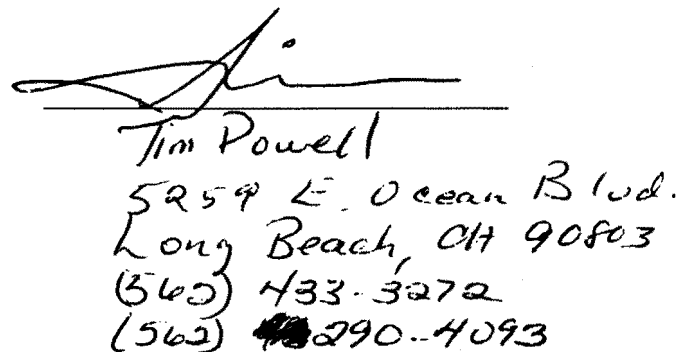 Tim Powell
5259 E. Ocean Blvd.
Long Beach, CA 90803
(562) 433-3272
(562) 290-4093